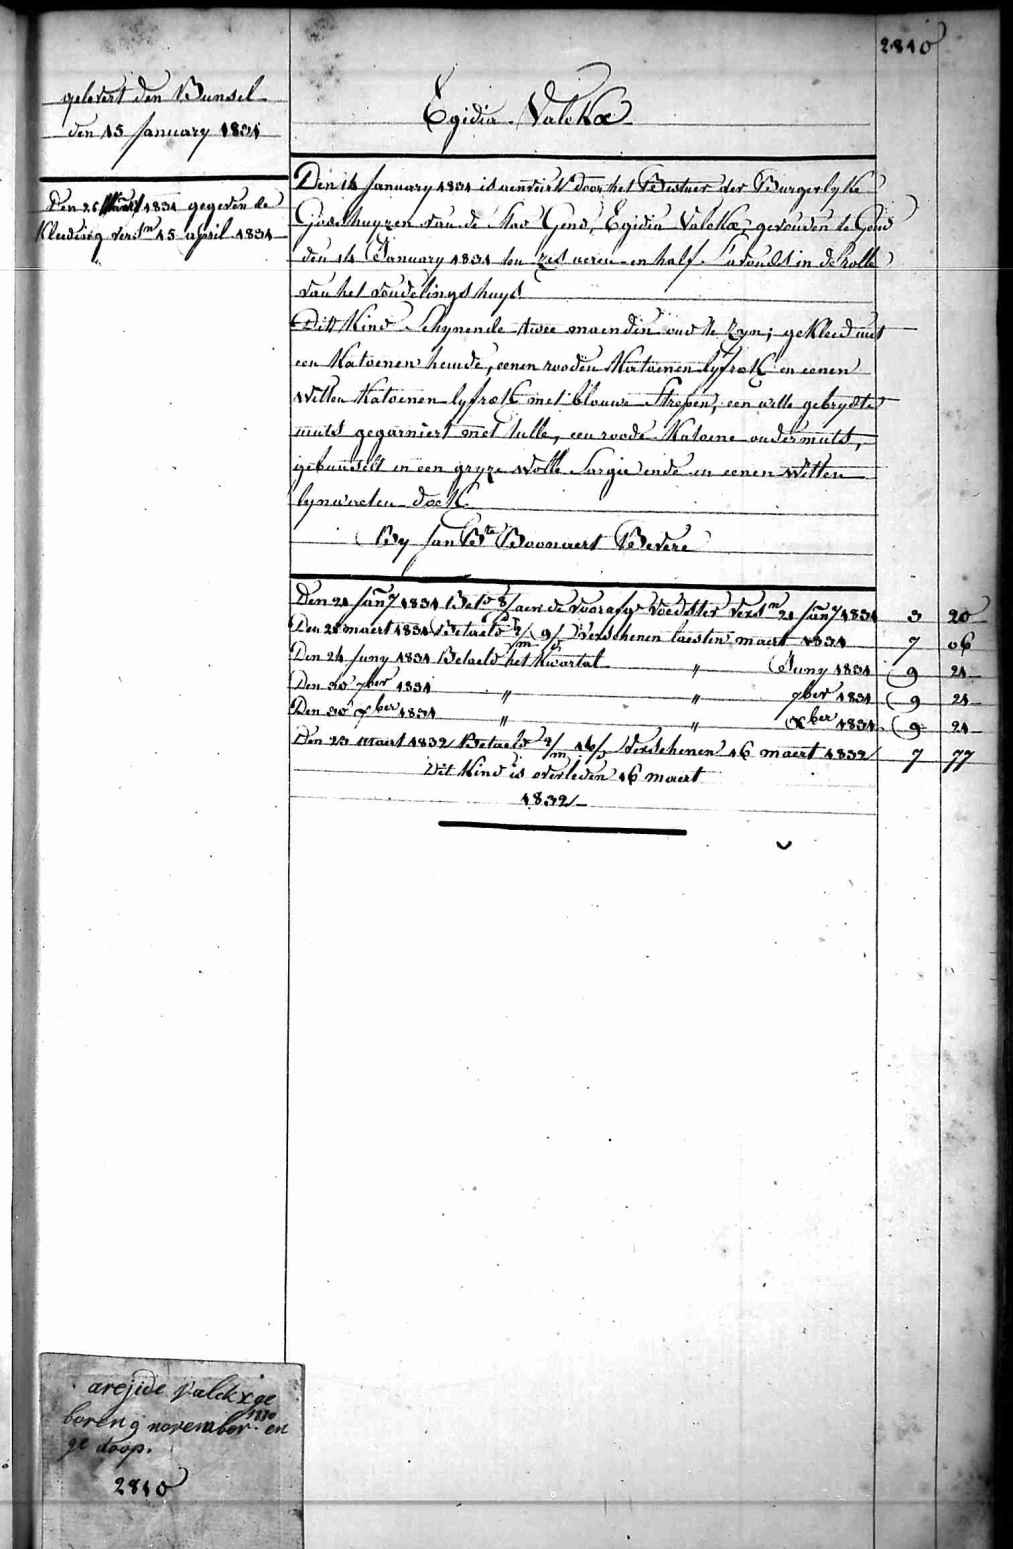 2810
gelevert den Bunsel
den 15 January 1831
Den 26 1831 gegeven de
Kleeding vers.m 15 april 1831
Egidia Valckx
Den 14 January 1831 is aenveirt door het Bestuer der Burgerlyke
Godshuyzen van de Stad Gend, Egidia Valckx, gevonden te Gend
den 14 January 1831 ten zes ueren en half S'avonds in de rolle
van het vondelings huys
Dit Kind Schynende twee maenden oud te zyn; gekleed met
een Katoenen hemde, eenen rooden Katoenen lyfrok en eenen
witten Katoenen lyfrok met blauwe Strepen, een witte gebryde
muts gegarniert met tulle, een roode Katoene ondermuts,
gebunselt in een gryze wolle Sargie ende in eenen witten
lynwaeten doek
By Jan Bte Boonaert Bevere
Den 21 Jany 1831 Bet.d aen de voorafg. Voedster vers.m 21 Jany 1831 3 20
Den 28 maert 1831 Betaeld 2/m 9/j Verschenen laesten maert 1831 7 06
Den 24 Juny 1831 Betaeld het Kwartal " Juny 1831 9 21
Den 30 7ber 1831 " " 7ber 1831 9 21
Den 30 Xber 1831 " " Xber 1831 9 21
Den 23 maert 1832 Betaeld 2/m 16/j Verschenen 16 maert 1832 7 77
Dit Kind is overleden 16 maert
1832
arejide valckx ge
boren 9 november 1830 en
ge doop.
2810